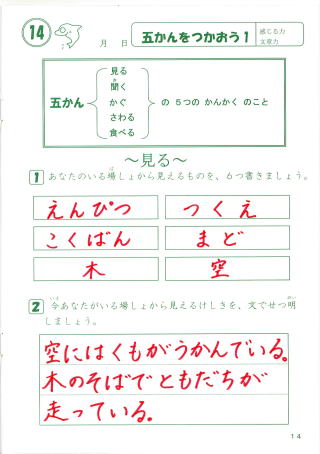 14
月 日
五かんをつかおう1
感じる力
文章力
五かん
見る
聞く
かぐ
さわる
食べる
の 5つの かんかく のこと
～見る～
1 あなたのいる場しょから見えるものを、6つ書きましょう。
えんぴつ つくえ
こくばん まど
木 空
2 今あなたがいる場しょから見えるけしきを、文でせつ明
しましょう。
空にはくもがうかんでいる。
木のそばでともだちが
走っている。
14